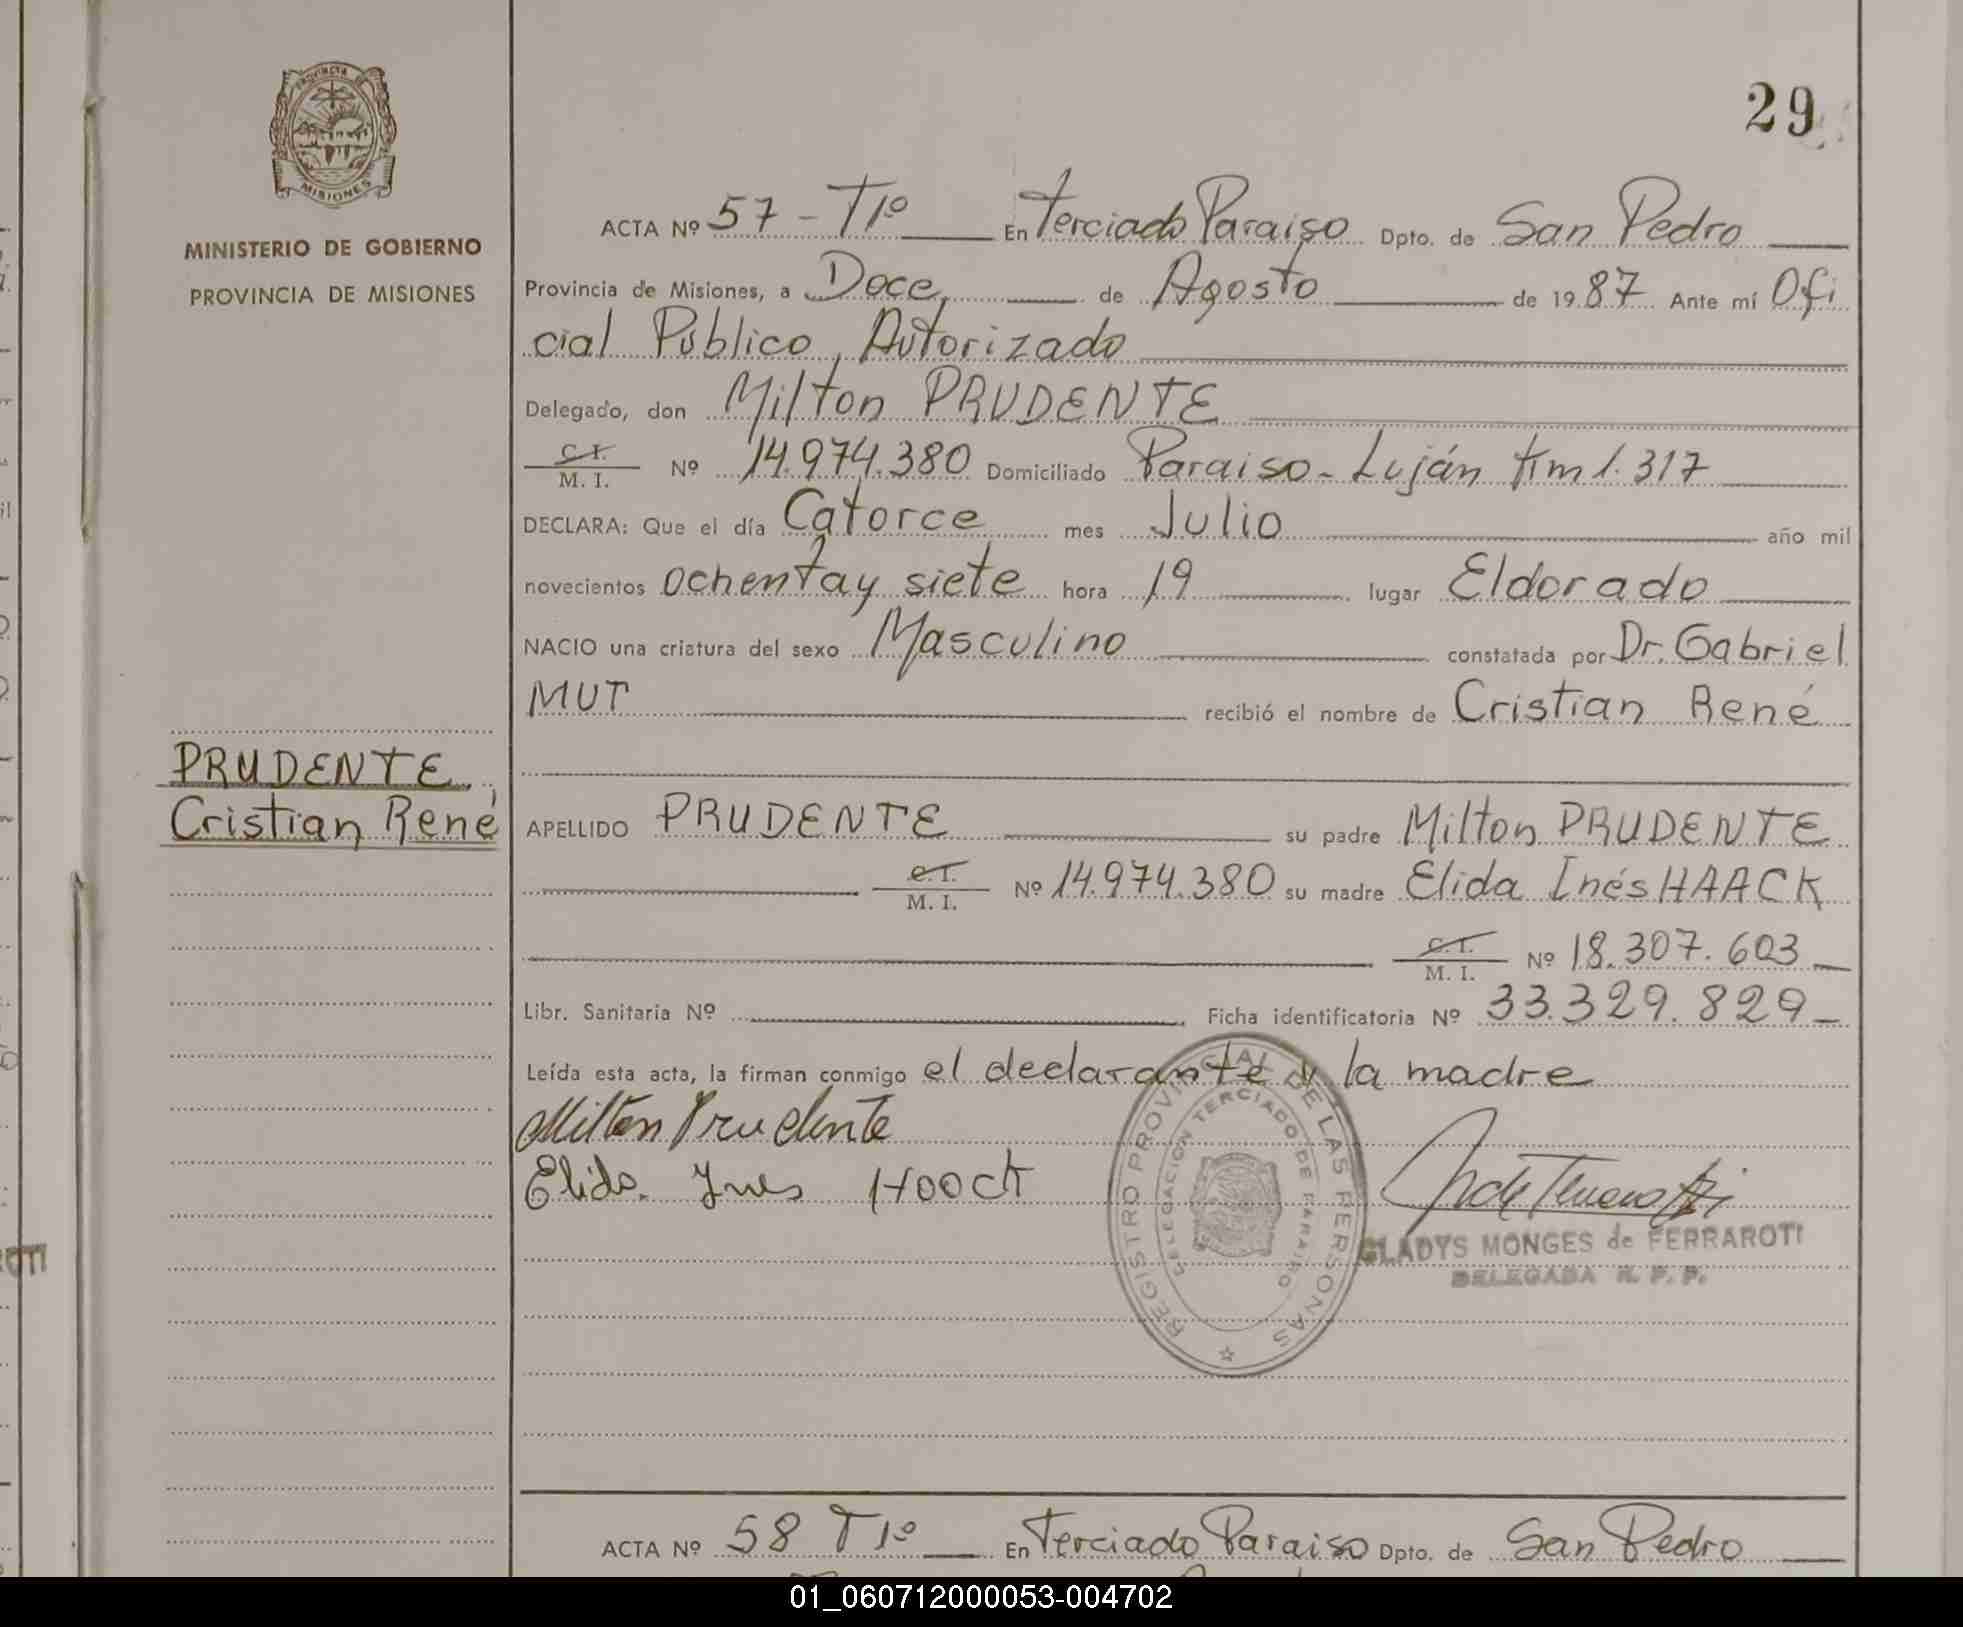 29
PROVINCIA DE
MISIONES
MINISTERIO DE GOBIERNO
PROVINCIA DE MISIONES
PRUDENTE,
Cristian René
ACTA Nº 57 - T1º En Terciado Paraiso Dpto. de San Pedro
Provincia de Misiones, a Doce, de Agosto de 1987 Ante mí Ofi
cial Público, Autorizado
Delegado, don Milton PRUDENTE
C.I.
M. I. Nº 14.974.380 Domiciliado Paraiso - Luján Km 1.317
DECLARA: Que el día Catorce mes Julio año mil
novecientos ochenta y siete hora 19 lugar Eldorado
NACIO una criatura del sexo Masculino constatada por Dr. Gabriel
MUT recibió el nombre de Cristian René
APELLIDO PRUDENTE su padre Milton PRUDENTE
C.I.
M. I. Nº 14.974.380 su madre Elida Inés HAACK
C.I.
M. I. Nº 18.307.603
Libr. Sanitaria Nº Ficha identificatoria Nº 33.329.829
Leída esta acta, la firman conmigo el declarante y la madre
Milton Prudente
Elida Ines Haack
REGISTRO PROVINCIAL DE LAS PERSONAS
DELEGACION TERCIADO DE PARAISO
GLADYS MONGES de FERRAROTI
DELEGADA R. P. P.
ROTI
ACTA Nº 58 T1º En Terciado Paraiso Dpto. de San Pedro
01_060712000053-004702